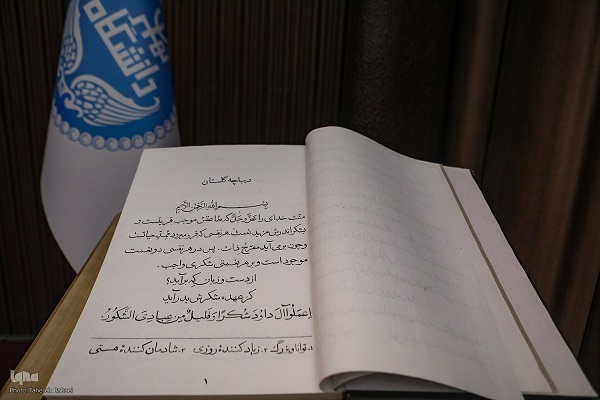 دانشگاه
دیباچه گلستان
بسم الله الرحمن الرحیم
منّت خدای را عزّ و جلّ که طاعتش موجب قربتست و
بشکر اندرش مزید نعمت. هر نفسی که فرو میرود ممدّ حیاتست
و چون بر می آید مفرّح ذات. پس در هر نفسی دو نعمت
موجود است و بر هر نعمتی شکری واجب.
از دست و زبان که برآید؟
کز عهده شکرش بدر آید
اِعمَلوا آلَ داوُدَ شُکراً وَ قَلیلٌ مِن عِبادِیَ الشَّکُورُ.
۱. توانا و بزرگ ۲. زیاد کنندهٔ روزی ۳. شادمان کنندهٔ هستی
۱
iqna
Photo: Tahereh Babaei